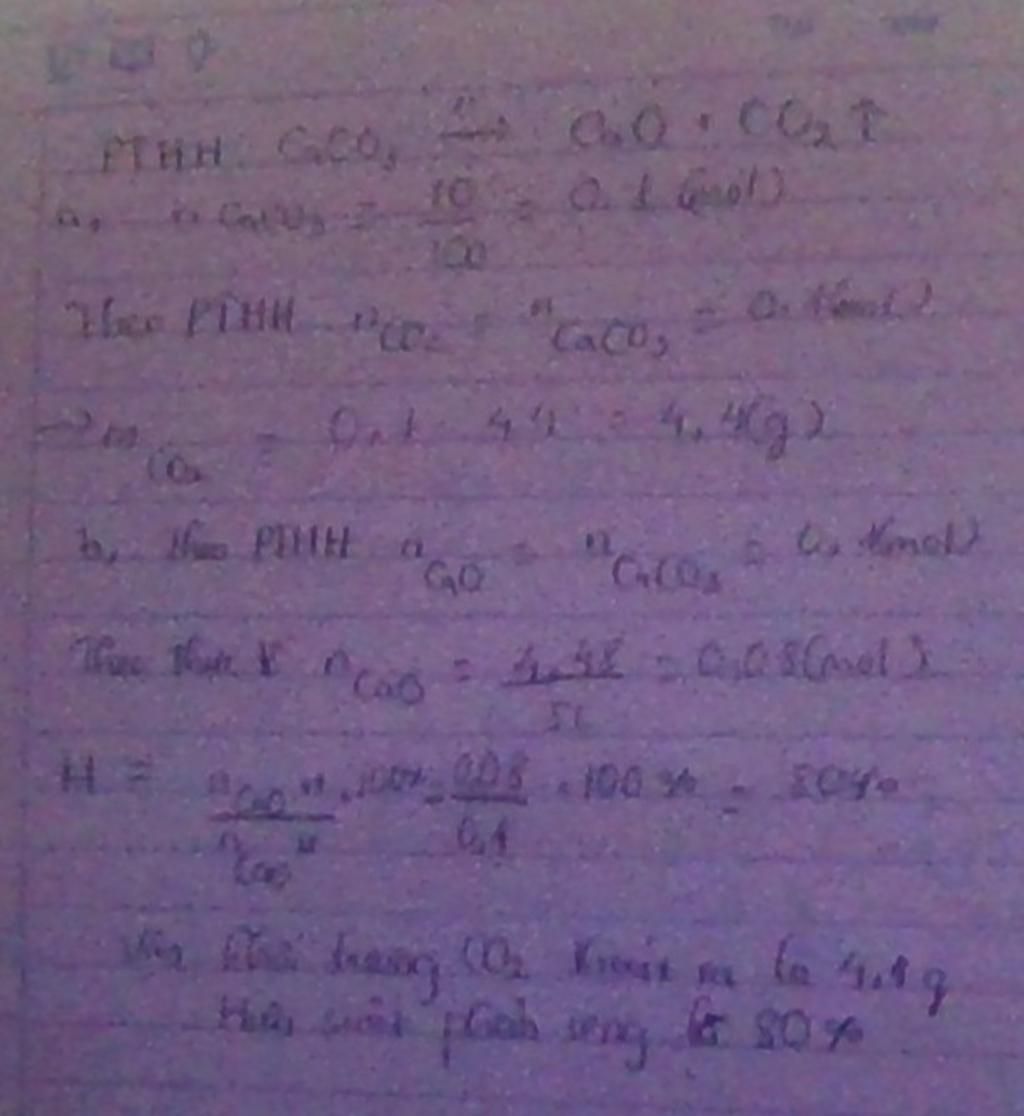 PTHH: CaCO3 t° → CaO + CO2 ↑
a, n CaCO3 = 10/100 = 0.1 (mol)
Theo PTHH n CO2 = n CaCO3 = 0.1 (mol)
→ m CO2 = 0.1 . 44 = 4,4(g)
b, theo PTHH n CaO = n CaCO3 = 0,1(mol)
Theo n CaO = 4,48/56 = 0,08(mol)
H = n CaO / n CaO . 100% = 0,08/0,1 . 100% = 80%
Vậy khối lượng CO2 là 4,4 g
Hiệu suất phản ứng là 80%